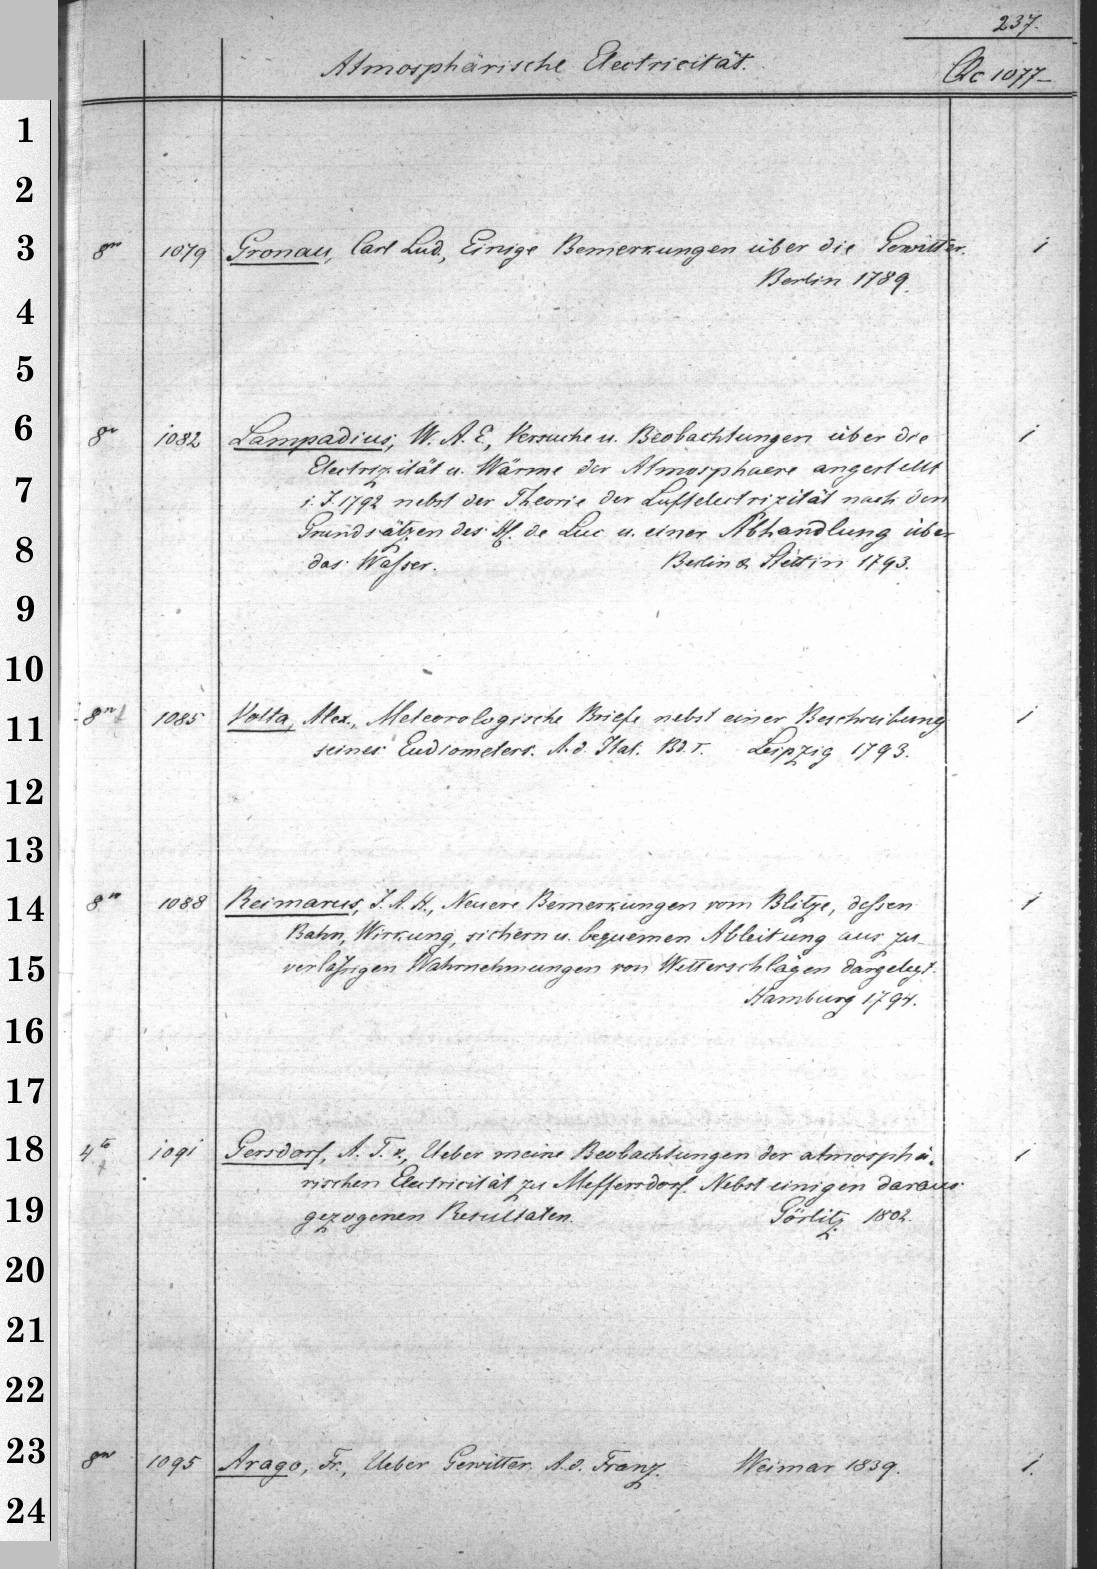 237.
Atmosphärische Electricität. Qc 1077—
1
2
3
8vo 1079 Gronau, Carl Lud., Einige Bemerkungen über die Gewitter. 1
Berlin 1789.
4
5
6
8vo 1082 Lampadius, W. A. E., Versuche u. Beobachtungen über die 1
Electrizität u. Wärme der Atmosphaere angestellt
7
i. J. 1792 nebst der Theorie der Luftelectrizität nach den
Grundsätzen des H. de Luc u. einer Abhandlung über
8
das Wasser. Berlin & Stettin 1793.
9
10
11
8vo 1085 Volta, Alex., Meteorologische Briefe nebst einer Beschreibung 1
seines Eudiometers. A. d. Ital. Bd. I. Leipzig 1793.
12
13
14
8vo 1088 Reimarus, J. A. H., Neuere Bemerkungen vom Blitze, dessen 1
Bahn, Wirkung, sichern u. bequemen Ableitung aus zu-
15
verlässigen Wahrnehmungen von Wetterschlägen dargelegt.
Hamburg 1794.
16
17
18
4to 1091 Gersdorf, A. T. v., Ueber meine Beobachtungen der atmosphä-1
rischen Electricität zu Meffersdorf. Nebst einigen daraus
19
gezogenen Resultaten. Görlitz 1802.
20
21
22
23
8vo 1095 Arago, Fr., Ueber Gewitter. A. d. Franz. Weimar 1839. 1.
24